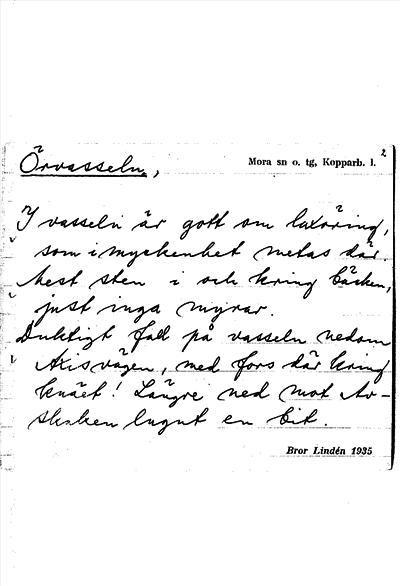 Mora sn o. tg, Kopparb. l. 2
Örvasseln,
I vasseln är gott om laxöring,
som i myckenhet metas där.
Mest sten i och kring bäcken,
just inga myrar.
Duktigt fall på vasseln nedom
Axisvägen, med fors där kring
knäet! Längre ned mot Av-
skaken lugnt en bit.
Bror Lindén 1935